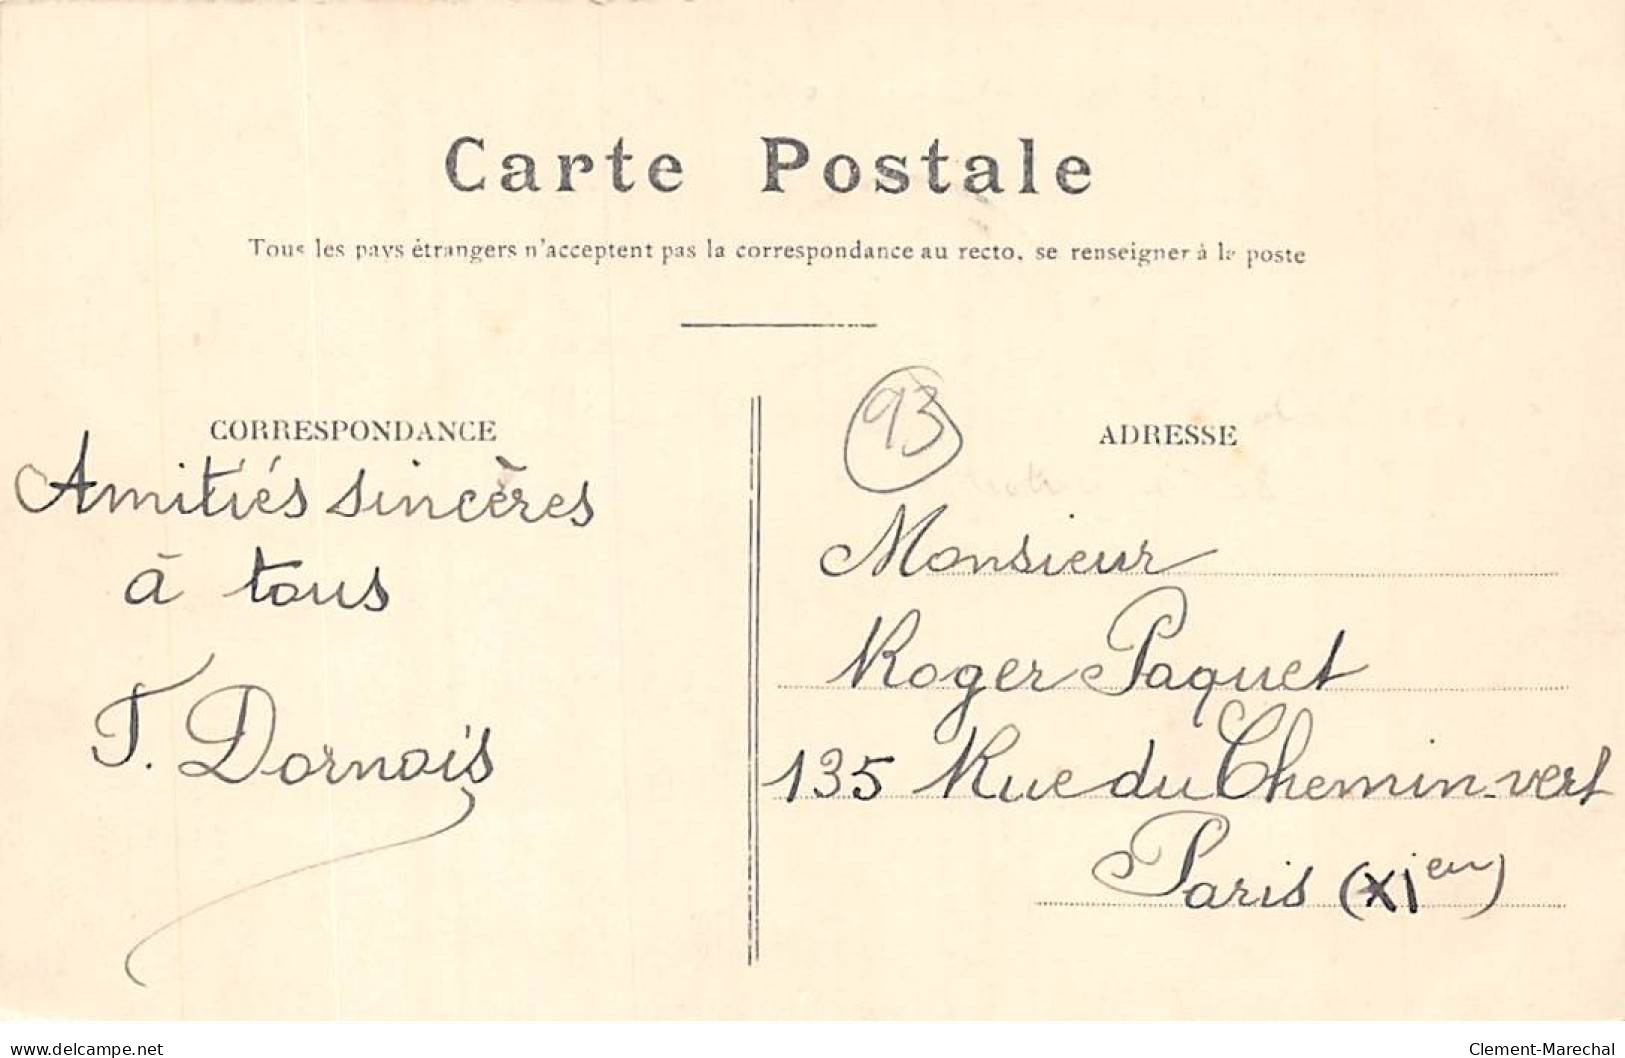 Carte Postale
Tous les pays étrangers n'acceptent pas la correspondance au recto, se renseigner à la poste
CORRESPONDANCE
Amitiés sincères
à tous
T. Dornois
93
ADRESSE
Monsieur
Roger Paquet
135 Rue du Chemin-vert
Paris (XIem)
delcampe.net
Clement-Marechal